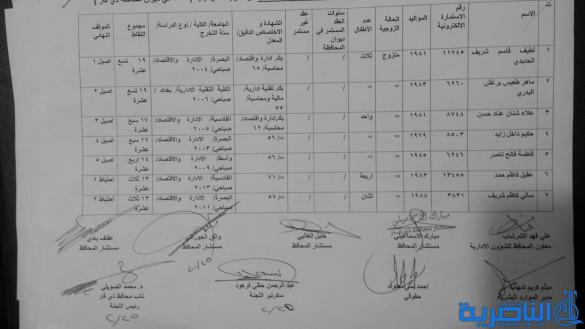 ت
الاسم
رقم الاستمارة الالكترونية
المواليد
الحالة الزوجية
عدد الاطفال
سنوات العقد المستمر في ديوان المحافظة
عقد غير مستمر
الشهادة و الاختصاص الدقيق/ المعدل
الجامعة/ الكلية / نوع الدراسة/ سنة التخرج
مجموع النقاط
الموقف النهائي
1 لطيف قاسم شريف الحديدي ١١٧٤٥ ١٩٨١ متزوج ثلاث / / بك. ادارة واقتصاد/ محاسبة/ ٦٥ البصرة/ الادارة والاقتصاد/ صباحي/ ٢٠٠٤ ١٩ تسع عشرة اصيل 1
2 ماهر طعيس برغش البدري ٦٢٦٠ ١٩٨٣ = = / / بك. تقنية ادارية/ مالية ومحاسبية/ ٥٥ الكلية التقنية الادارية/ بغداد / صباحي/ ٢٠٠٦ ١٩ تسع عشرة اصيل 2
3 علاء شنان عناد حسن ٨٧٤٨ ١٩٨١ = واحد / / بك. ادارة واقتصاد/ محاسبة/ ٦٢ القادسية/ الادارة والاقتصاد/ صباحي/ ٢٠٠٥ ١٧ سبع عشرة اصيل 3
4 حكيم داخل زايد ٨٥٠٣ ١٩٧٩ = = / / =/ ٥٦ البصرة/ الادارة والاقتصاد/ صباحي/ ٢٠٠٣ ١٧ سبع عشرة اصيل 4
5 فاطمة فالح ناصر ٦٢٤٦ ١٩٨٥ = = / / =/ ٥٦ واسط/ الادارة والاقتصاد/ صباحي/ ٢٠٠٩ ١٤ اربع عشرة اصيل 5
6 عقيل كاظم حمد ١٣٤٥٥ ١٩٨٣ = اربعة / / =/ ٧١ القادسية/ الادارة والاقتصاد/ صباحي/ ٢٠١٣ ١٣ ثلاث عشرة احتياط 1
7 سالي كاظم شريف ٣٨٣١ ١٩٨٨ = اثنان / / =/ ٥٧ البصرة/ الادارة والاقتصاد/ صباحي/ ٢٠٢١ ١٣ ثلاث عشرة احتياط 2
علي فهد الشرشاب
معاون المحافظ للشؤون الادارية
مبارك الاسماعيلي
مستشار المحافظ
خليل الغالبي
مستشار المحافظ
واثق الجوراني
مستشار المحافظ
عفاف بادي
مستشار المحافظ
ميثم كريم شهاب
مدير الموارد البشرية
حقوقي
عبد الرحمن حنظي فرهود
سكرتير اللجنة
د. محمد الصويلي
نائب محافظ ذي قار
رئيس اللجنة
الناصرية